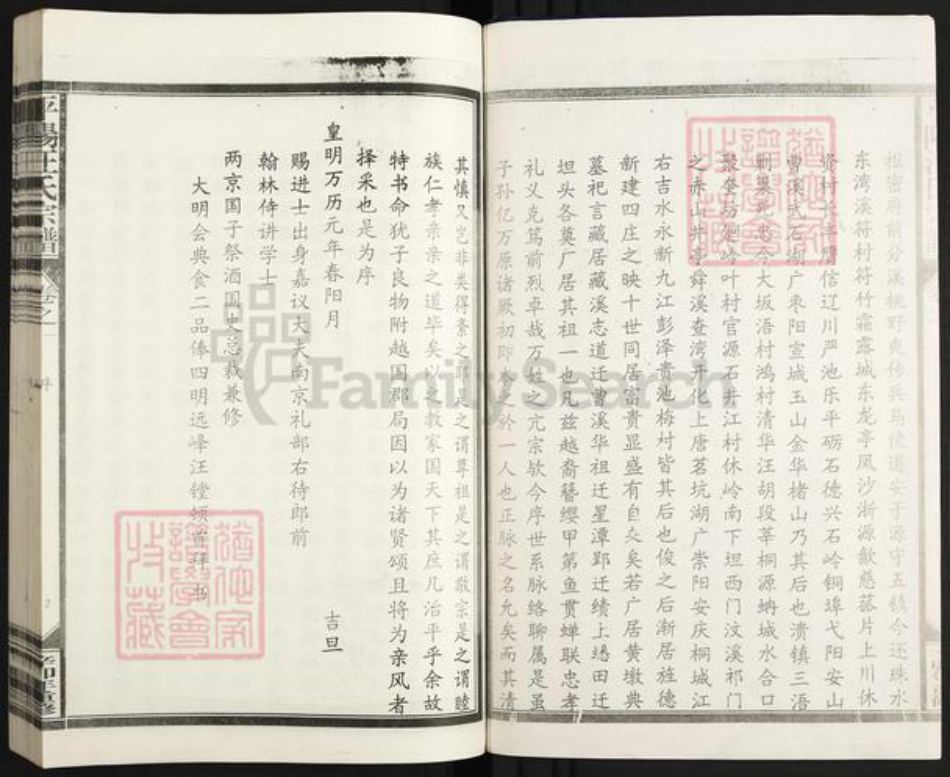 枢密府前分溪桃野爽传兵马使道安于源守五镇今还珠水
东湾溪符村符竹霜露城东龙亭凤沙浙源歙慈菰片上川休
资村长丰膺信辽川严池乐平砺石德兴石岭铜埠戈阳安山
曹溪武石湖广枣阳宣城玉山金华楮山乃其后也溃镇三浯
死忠今大坂浯村鸿村清华汪胡段莘桐源蚺城水合口
聚奎坊 岭叶村官源石井江村休岭南下坦西门汶溪祁门
之赤山井亭舜溪查湾开化上唐茗坑湖广崇阳安庆桐城江
右吉水永新九江彭泽贵池梅村皆其后也俊之后渐居旌德
新建四庄之映十世同居富贵显盛有自众矣若广居黄墩典
墓祀言藏居藏溪志道迁曹溪华祖迁星潭郢迁绩上 田迁
坦头各奠厂居其祖一也凡兹越裔簪缨甲第鱼贯蝉联忠孝
礼义克笃前烈卓哉万姓之亢宗欤今序世系脉络聊属是虽
子孙亿万原诸厥初即本之於一人也正脉之名允矣而其清
其慎又岂非类得紊之耶是之谓尊祖是之谓敬宗是之谓睦
族仁孝亲亲之道毕矣以之教家国天下其庶几治平乎余故
特书命犹子良物附越国郡局因以为诸贤颂且将为亲风者
择采也是为序
皇明万历元年春阳月 吉旦
赐进士出身嘉议大夫南京礼部右待郎前
翰林侍讲学士
两京国子祭酒国史总裁兼修
大明会典食二品俸四明远峰汪镗顿首拜书
平阳汪氏宗谱
卷之一
序
2
FamilySearch